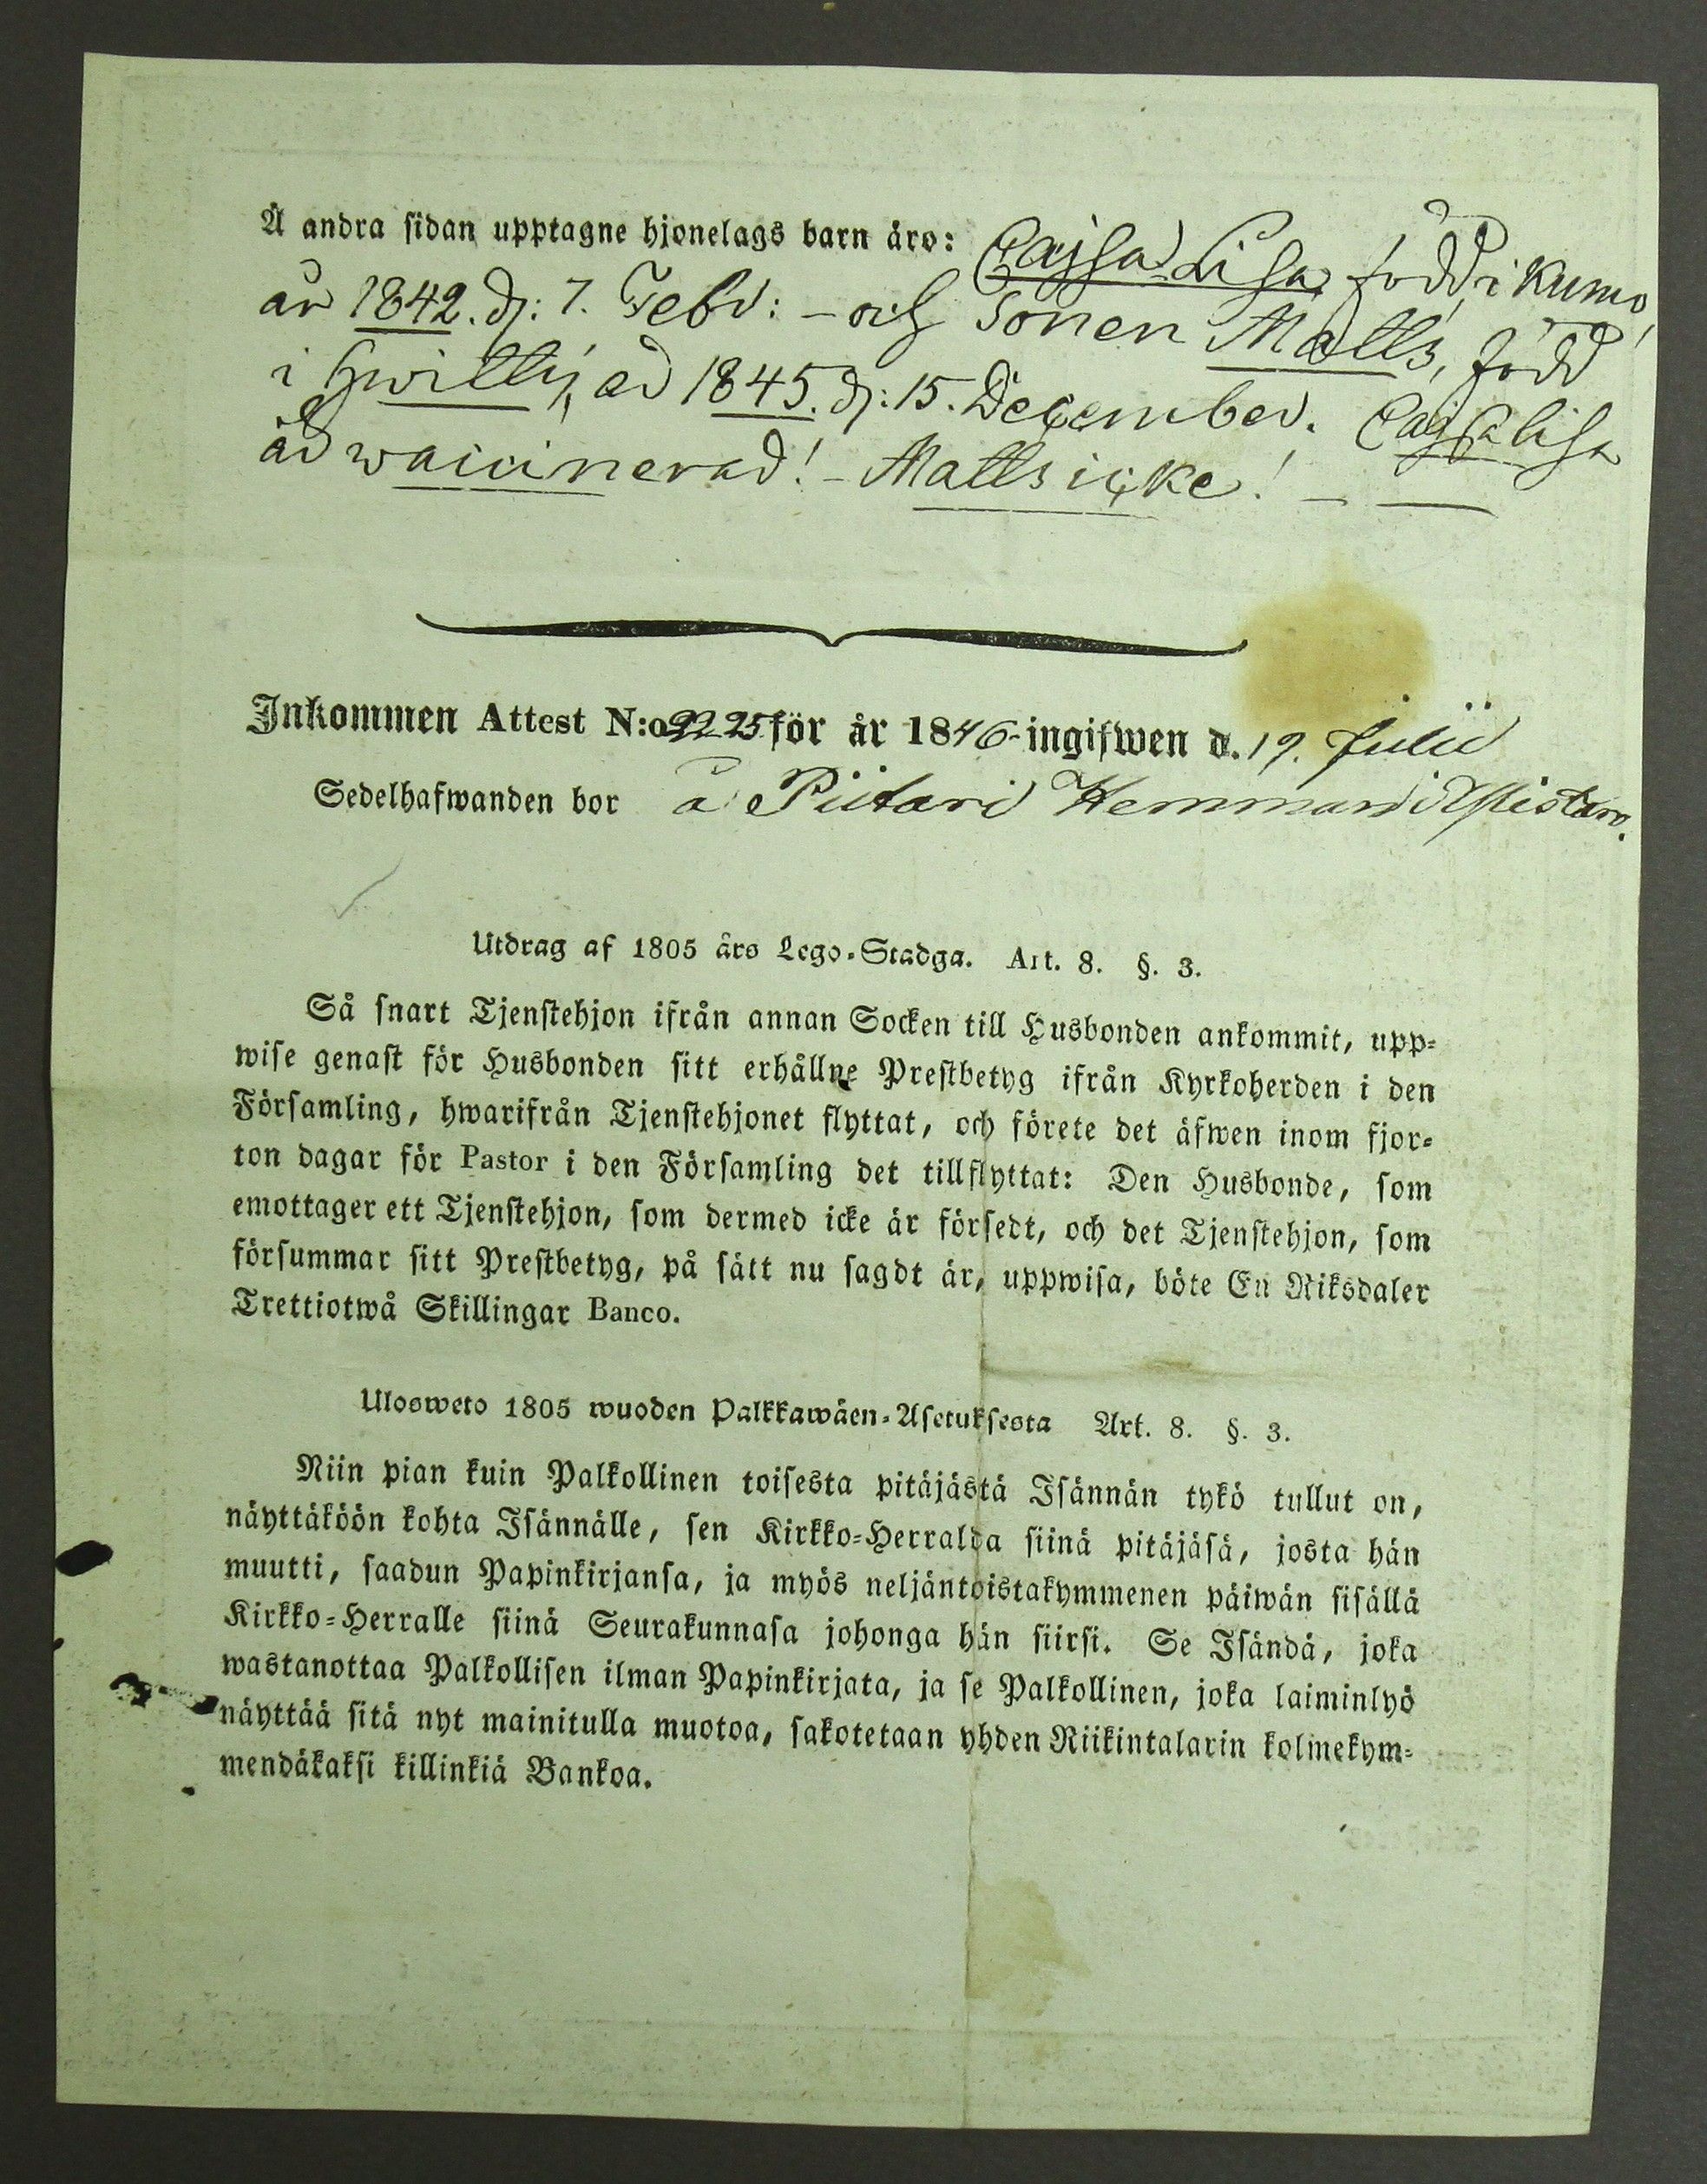 Å andra sidan upptagne hjonelags barn äro: Cajsa Lisa, född i Kumo,
år 1842. d: 7. Febr: – och Sonen Matts, född
i Hwittis, år 1845. d: 15. December. Cajsa Lisa
är waccinerad! – Matts icke! – —
Inkommen Attest N:o 25 för år 1846 ingifwen d. 19. Julii
Sedelhafwanden bor å Piitari Hemman i
Utdrag af 1805 års Lego-Stadga. Art. 8. §. 3.
Så snart Tjenstehjon ifrån annan Socken till Husbonden ankommit, upp-
wise genast för Husbonden sitt erhållne Prestbetyg ifrån Kyrkoherden i den
Församling, hwarifrån Tjenstehjonet flyttat, och förete det äfwen inom fjor-
ton dagar för Pastor i den Församling det tillflyttat: Den Husbonde, som
emottager ett Tjenstehjon, som dermed icke är försedt, och det Tjenstehjon, som
försummar sitt Prestbetyg, på sätt nu sagdt är, uppwisa, böte En Riksdaler
Trettiotwå Skillingar Banco.
Ulosweto 1805 wuoden Palkkawäen-Asetuksesta Art. 8. §. 3.
Niin pian kuin Palkollinen toisesta pitäjästä Isännän tykö tullut on,
näyttäköön kohta Isännälle, sen Kirkko-Herralda siinä pitäjäsä, josta hän
muutti, saadun Papinkirjansa, ja myös neljäntoistakymmenen päiwän sisällä
Kirkko-Herralle siinä Seurakunnasa johonga hän siirsi. Se Isändä, joka
wastanottaa Palkollisen ilman Papinkirjata, ja se Palkollinen, joka laiminlyö
näyttää sitä nyt mainitulla muotoa, sakotetaan yhden Riikintalarin kolmekym-
mendäkaksi killinkiä Bankoa.